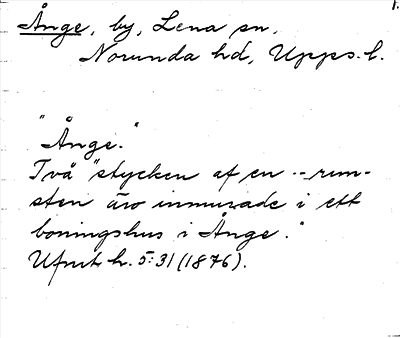 1.
Ånge, by, Lena sn,
Norunda hd, Upps. l.
"Ånge."
Två "stycken af en -- run-
sten äro inmurade i ett
boningshus i Ånge."
Ufmt h. 5:31 (1876).